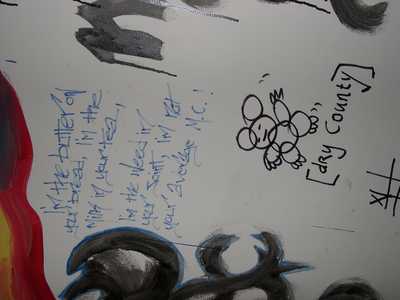 I'm the butter on
your bread, I'm the
Milk in your tea,
I'm the weed in
your joint, I'm not
your average M.C.!
[dry county]